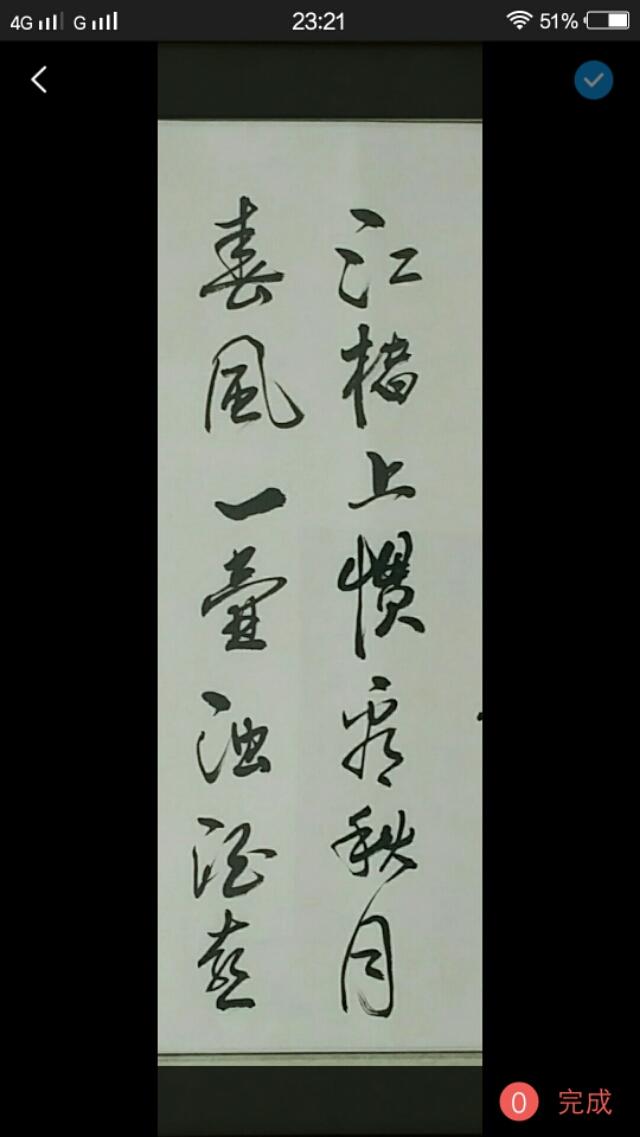 4G G 23:21 51%
江楮上慣看秋月
春風一壺浊酒喜
0 完成